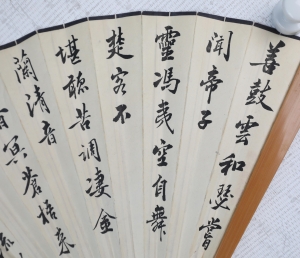 善鼓雲和瑟嘗
聞帝子
靈馮夷空自舞
楚客不
堪聽苦調淒金
蘭清音
杳冥蒼梧來